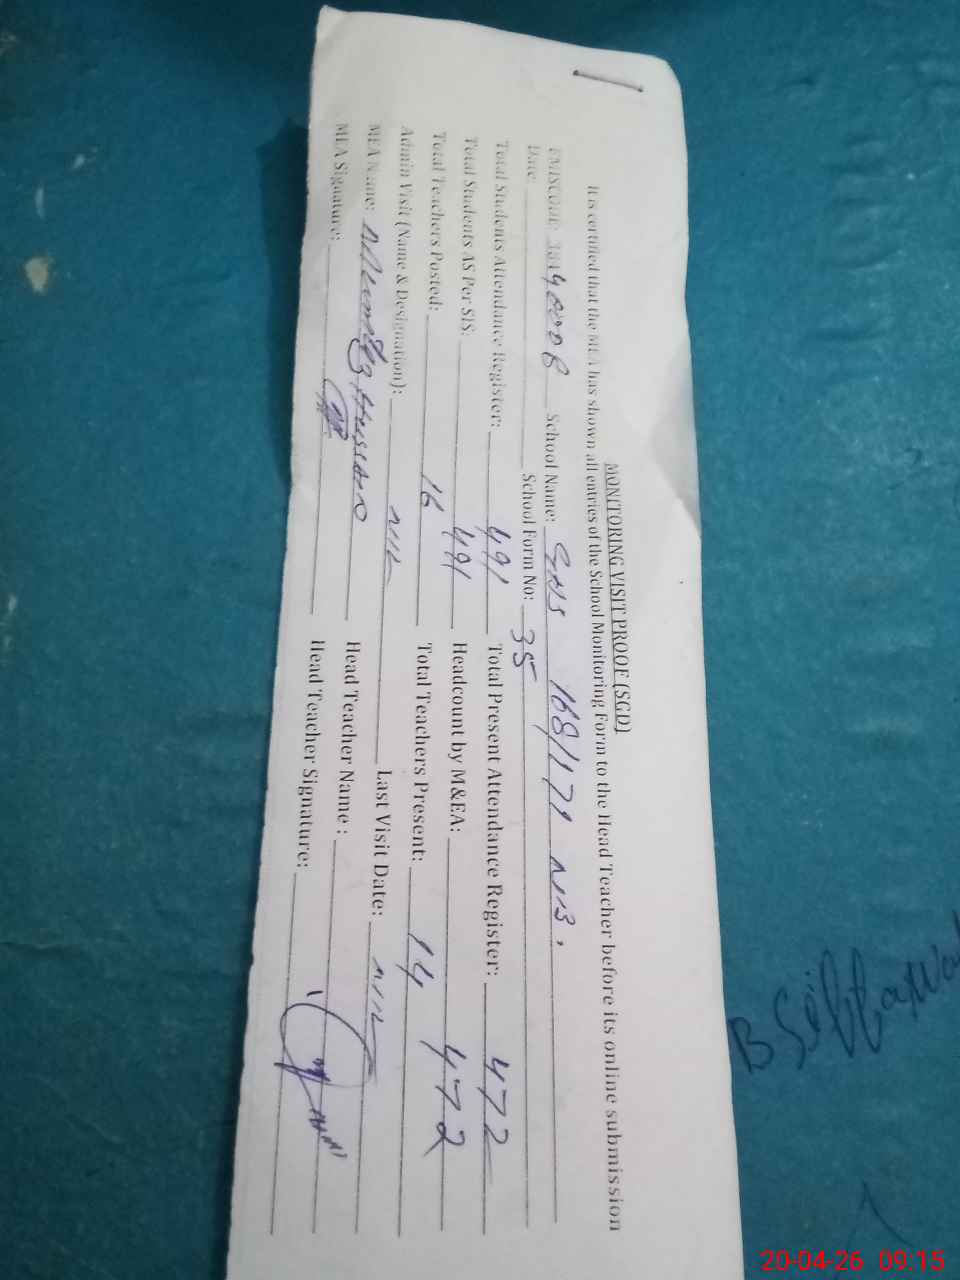 MONITORING VISIT PROOF (SGD)
It is certified that the MEA has shown all entries of the School Monitoring Form to the Head Teacher before its online submission
EMISCODE School Name: GHS 168/171 NB.
Date: School Form No: 35
Total Students Attendance Register: 491 Total Present Attendance Register: 472
Total Students AS Per SIS: 491 Headcount by M&EA: 472
Total Teachers Posted: 16 Total Teachers Present: 14
Admin Visit (Name & Designation): NIL Last Visit Date: NIL
MEA Name: Hussain Head Teacher Name :
MEA Signature: Head Teacher Signature:
B
20-04-26 09:15